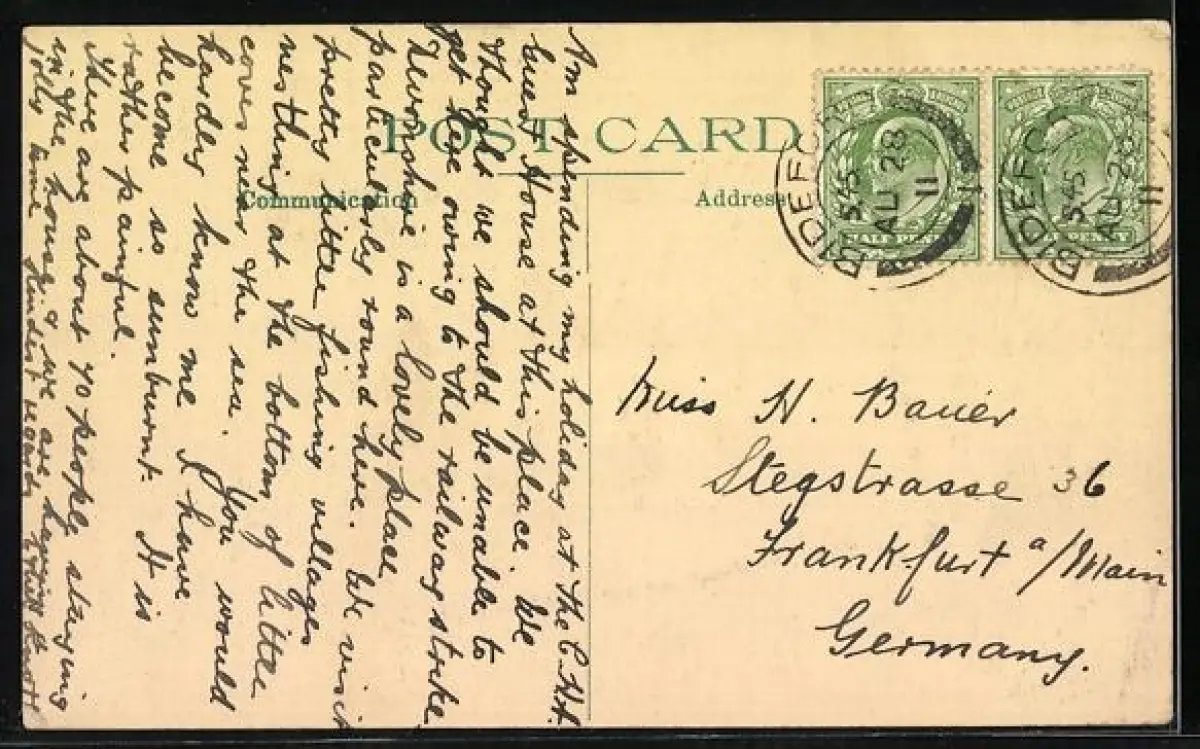 POST CARD
Communication
Address
BIDEFO
5.45
AU 28
11
HALF PENNY
BIDEFO
5.45
AU 28
11
HALF PENNY
Am spending my holiday at the C.H.A.
Guest House at this place. We
thought we should be unable to
get here owing to the railway strike.
Devonshire is a lovely place
particularly round here. We visit
pretty little fishing villages
nestling at the bottom of little
coves near the sea. You would
hardly know me I have
become so sunburnt. It is
rather painful.
There are about 70 people staying
in the house & we are having
jolly time Kindest regards
Miss H. Bauer
Stegstrasse 36
Frankfurt a/Main
Germany.